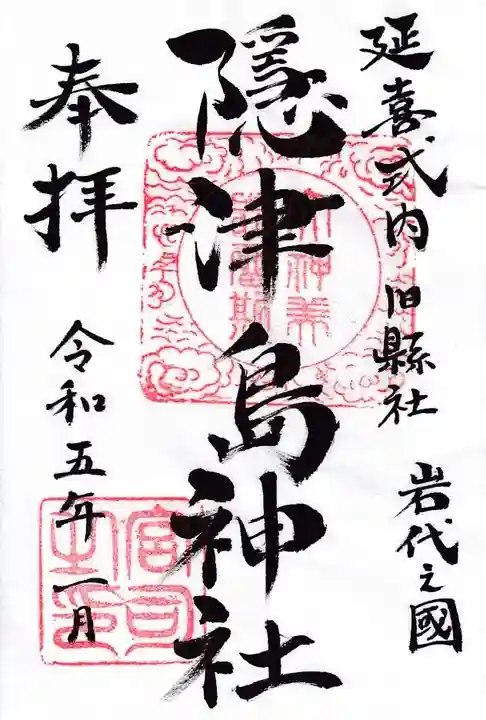 延喜式内 旧縣社 岩代之國
隱津島神社
奉拝 令和五年一月